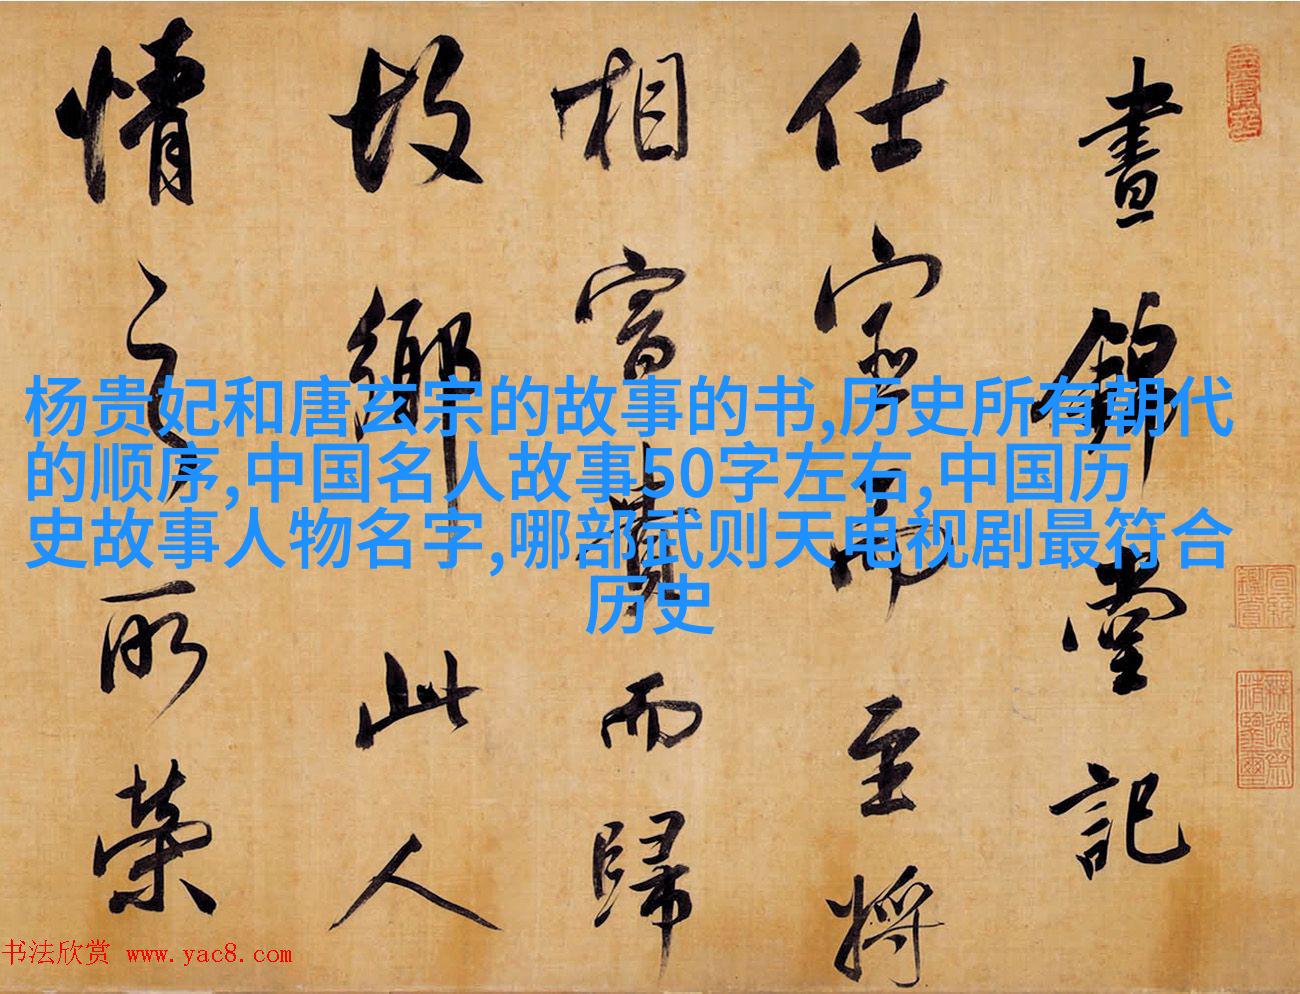 晝錦堂記
仕宦而至將
相富貴而歸
故鄉此人
情之所榮
杨贵妃和唐玄宗的故事的书,历史所有朝代
的顺序,中国名人故事50字左右,中国历
史故事人物名字,哪部武则天电视剧最符合
历史
书法欣赏 www.yac8.com